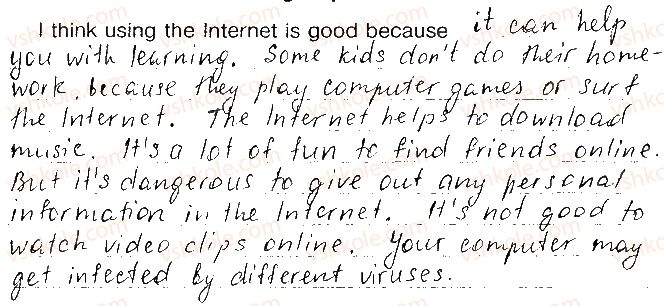 I think using the Internet is good because it can help
you with learning. Some kids don't do their home-
work, because they play computer games or surf
the Internet. The Internet helps to download
music. It's a lot of fun to find friends online.
But it's dangerous to give out any personal
information in the Internet. It's not good to
watch video clips online. Your computer may
get infected by different viruses.